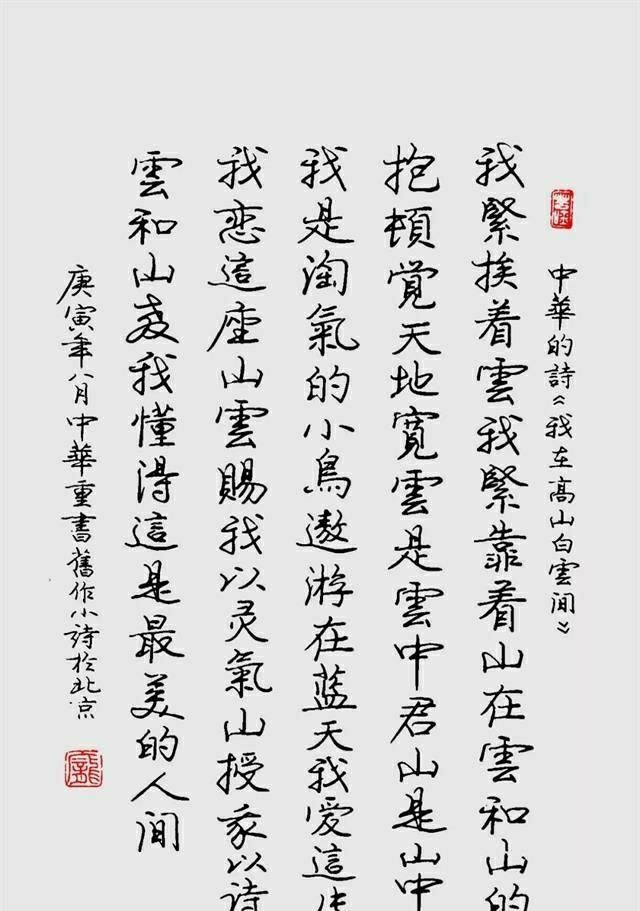 中華的詩《我在高山白雲间》
我緊挨着雲我緊靠着山在雲和山的
抱頓覺天地寬雲是雲中君山是山中
我是淘氣的小鳥遨游在蓝天我爱這
我恋這座山雲賜我以灵氣山授我以诗
雲和山教我懂得這是最美的人间
庚寅年八月中華重書舊作小詩於北京